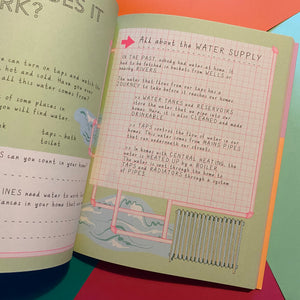 DOES IT
RK?
can turn on taps and watch
hot and cold. Have you ever
all this water comes from?
of some places in
you will find water.
taps - bath
toilet
can you count in your home?
need water to work
in your home that
All about the WATER SUPPLY
IN THE PAST, nobody had water at home. It
had to be fetched in buckets from WELLS or
nearby RIVERS.
The water that flows from our taps has a
JOURNEY to take before it reaches our homes.
WATER TANKS and RESERVOIRS
store the water that we pipe into our
homes. Here, it is also CLEANED and made
DRINKABLE.
TAPS control the flow of water in our
home. The water comes from MAINS PIPES
that run underneath our streets.
In homes with CENTRAL HEATING, the
water is HEATED UP by a BOILER.
The water moves through the home to
TAPS and RADIATORS through a system
of PIPES.